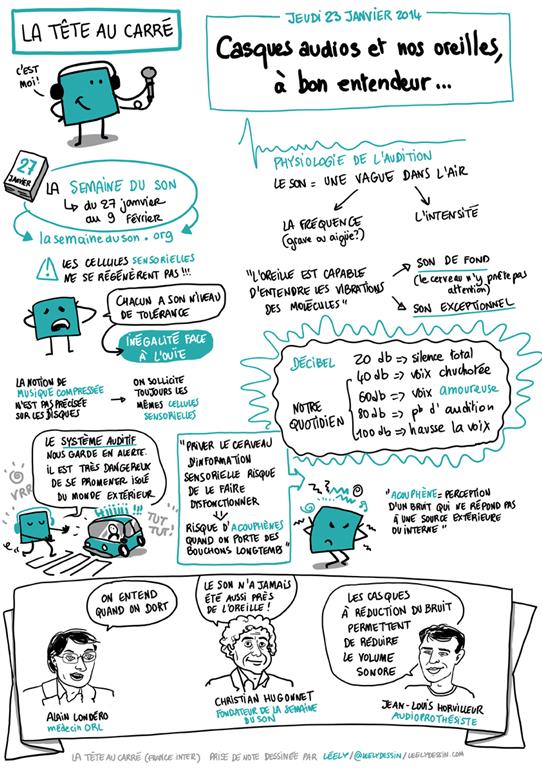 LA TÊTE AU CARRÉ
C'EST
MOI!
JEUDI 23 JANVIER 2014
Casques audios et nos oreilles,
à bon entendeur...
27
JANVIER
LA SEMAINE DU SON
↳ du 27 janvier
au 9 février
lasemaineduson.org
! LES CELLULES SENSORIELLES
NE SE RÉGÉNÈRENT PAS !!!
CHACUN A SON NIVEAU
DE TOLÉRANCE
INÉGALITÉ FACE
À L'OUÏE
LA NOTION DE
MUSIQUE COMPRESSÉE
N'EST PAS PRÉCISÉE
SUR LES DISQUES
→ ON SOLLICITE
TOUJOURS LES
MÊMES CELLULES
SENSORIELLES
PHYSIOLOGIE DE L'AUDITION
LE SON = UNE VAGUE DANS L'AIR
LA FRÉQUENCE
(grave ou aigüe?)
L'INTENSITÉ
"L'OREILLE EST CAPABLE
D'ENTENDRE LES VIBRATIONS
DES MOLÉCULES"
SON DE FOND
(le cerveau n'y prête pas
attention)
SON EXCEPTIONNEL
DÉCIBEL
NOTRE
QUOTIDIEN
20 db => silence total
40 db => voix chuchotée
60 db => voix amoureuse
80 db => pb d'audition
100 db => hausse la voix
LE SYSTÈME AUDITIF
NOUS GARDE EN ALERTE.
IL EST TRÈS DANGEREUX
DE SE PROMENER ISOLÉ
DU MONDE EXTÉRIEUR
TUT
TUT!
"PRIVER LE CERVEAU
D'INFORMATION
SENSORIELLE RISQUE
DE LE FAIRE
DYSFONCTIONNER
↓
RISQUE D'ACOUPHÈNES
QUAND ON PORTE DES
BOUCHONS LONGTEMPS"
"ACOUPHÈNE = PERCEPTION
D'UN BRUIT QUI NE RÉPOND PAS
À UNE SOURCE EXTÉRIEURE
OU INTERNE"
ON ENTEND
QUAND ON DORT
ALAIN LONDÉRO
médecin ORL
LE SON N'A JAMAIS
ÉTÉ AUSSI PRÈS
DE L'OREILLE!
CHRISTIAN HUGONNET
FONDATEUR DE LA SEMAINE
DU SON
LES CASQUES
À RÉDUCTION DU BRUIT
PERMETTENT
DE RÉDUIRE
LE VOLUME
SONORE
JEAN-LOUIS HORVILLEUR
AUDIOPROTHÉSISTE
LA TÊTE AU CARRÉ (FRANCE INTER) PRISE DE NOTE DESSINÉE PAR LÉELY/@LEELYDESSIN/LEELYDESSIN.COM